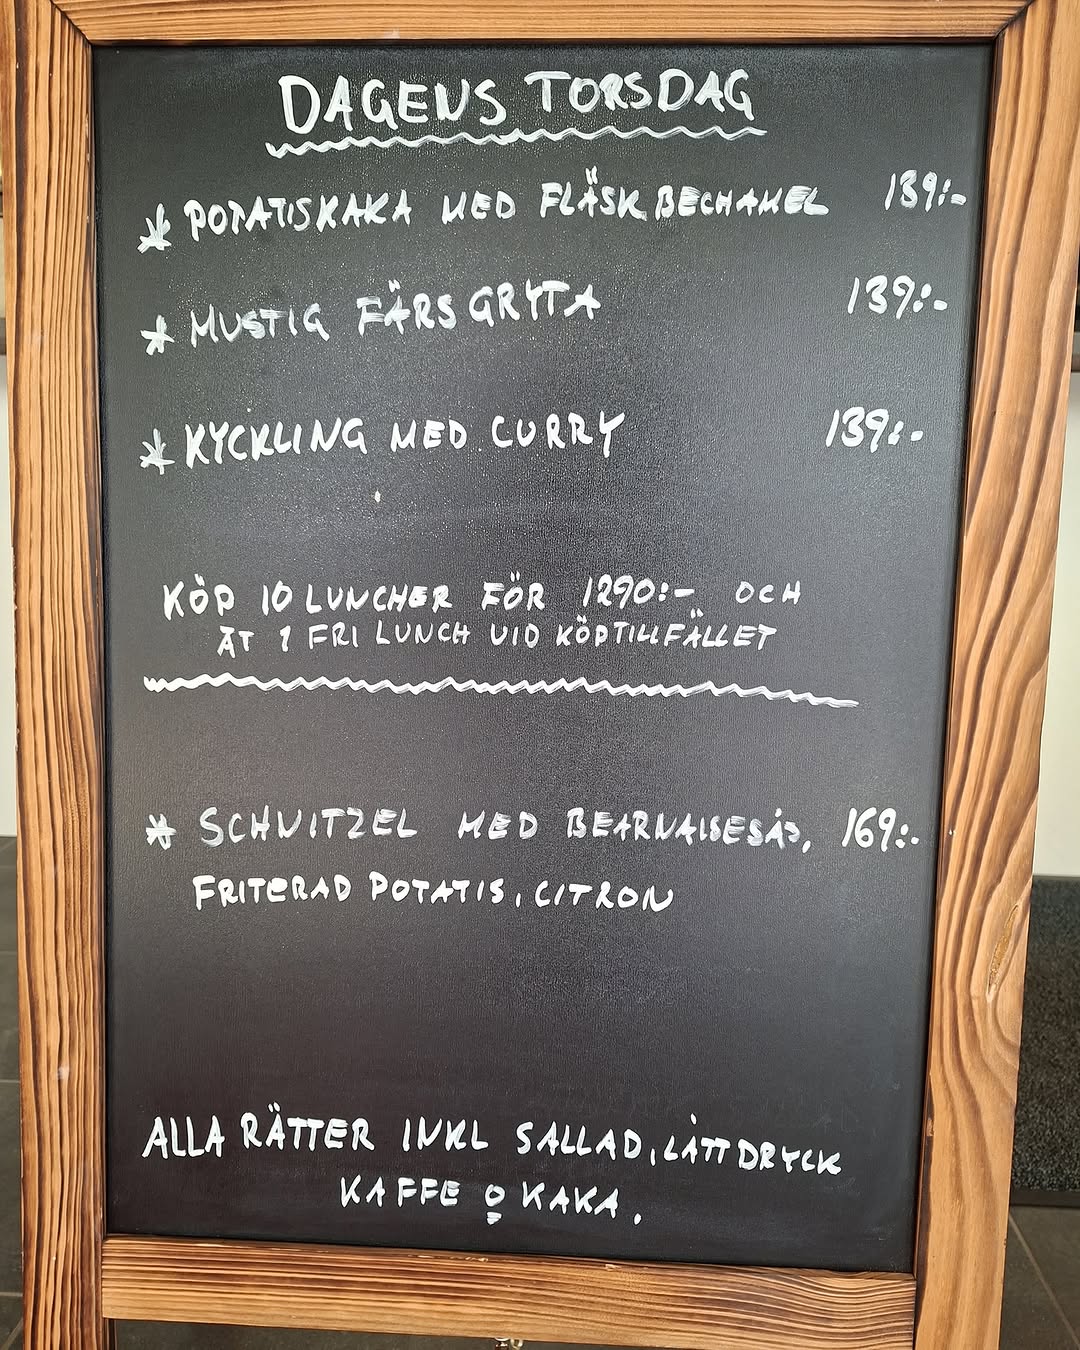 DAGENS TORSDAG
* POTATISKAKA MED FLÄSK BECHAMEL 139:-
* MUSTIG FÄRSGRYTA 139:-
* KYCKLING MED CURRY 139:-
KÖP 10 LUNCHER FÖR 1290:- OCH
ÄT 1 FRI LUNCH VID KÖPTILLFÄLLET
* SCHNITZEL MED BEARNAISESÅS, 169:-
FRITERAD POTATIS, CITRON
ALLA RÄTTER INKL SALLAD, LÄTTDRYCK
KAFFE O KAKA.